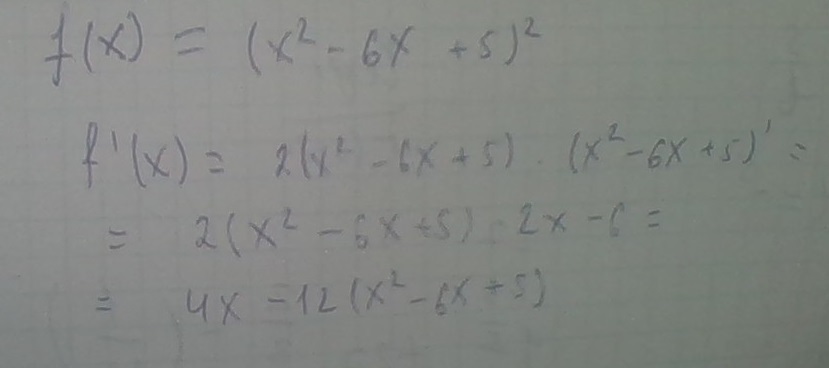 f(x) = (x² - 6x + 5)²
f'(x) = 2(x² - 6x + 5) · (x² - 6x + 5)' =
= 2(x² - 6x + 5) · 2x - 6 =
= 4x - 12(x² - 6x + 5)